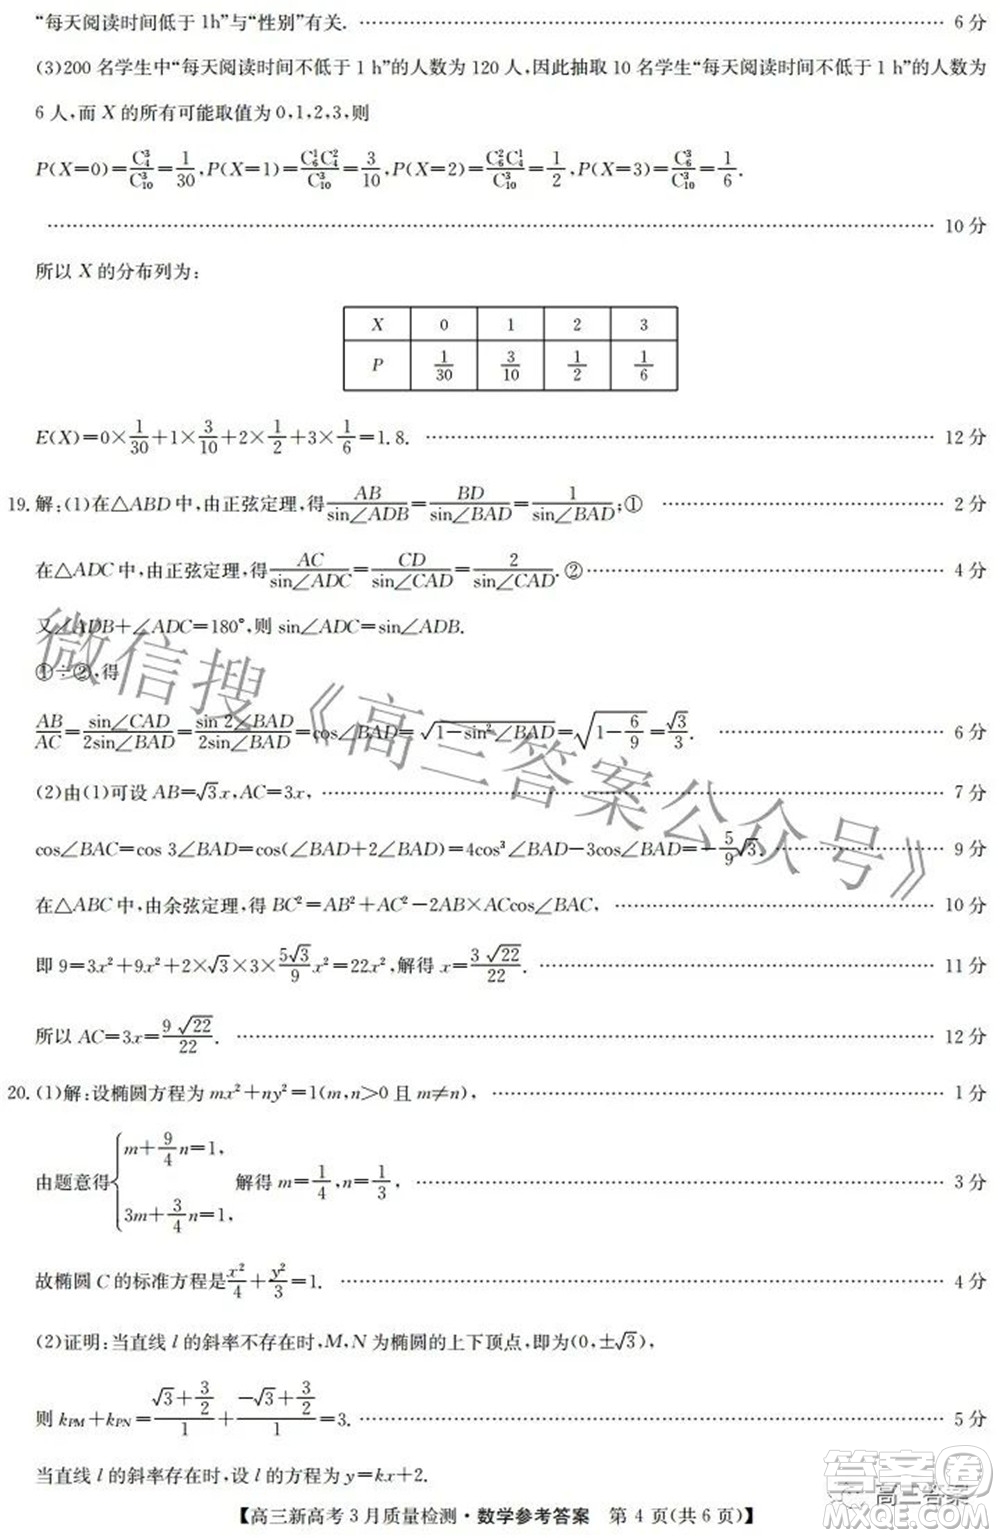 “每天阅读时间低于 1h”与“性别”有关. …… 6 分
(3)200 名学生中“每天阅读时间不低于 1 h”的人数为 120 人,因此抽取 10 名学生“每天阅读时间不低于 1 h”的人数为
6 人,而 X 的所有可能取值为 0,1,2,3,则
P(X=0)=C₄³/C₁₀³=1/30,P(X=1)=C₆¹C₄²/C₁₀³=3/10,P(X=2)=C₆²C₄¹/C₁₀³=1/2,P(X=3)=C₆³/C₁₀³=1/6.
…… 10 分
所以 X 的分布列为:
X 0 1 2 3
P 1/30 3/10 1/2 1/6
E(X)=0×1/30+1×3/10+2×1/2+3×1/6=1.8. …… 12 分
19. 解:(1)在△ABD 中,由正弦定理,得 AB/sin∠ADB=BD/sin∠BAD=1/sin∠BAD;① …… 2 分
在△ADC 中,由正弦定理,得 AC/sin∠ADC=CD/sin∠CAD=2/sin∠CAD.② …… 4 分
又∠ADB+∠ADC=180°,则 sin∠ADC=sin∠ADB.
①÷②,得
AB/AC=sin∠CAD/2sin∠BAD=sin 2∠BAD/2sin∠BAD=cos∠BAD=√(1-sin²∠BAD)=√(1-6/9)=√3/3. …… 6 分
(2)由(1)可设 AB=√3x,AC=3x, …… 7 分
cos∠BAC=cos 3∠BAD=cos(∠BAD+2∠BAD)=4cos³∠BAD-3cos∠BAD=-5/9√3. …… 9 分
在△ABC 中,由余弦定理,得 BC²=AB²+AC²-2AB×ACcos∠BAC, …… 10 分
即 9=3x²+9x²+2×√3×3×5√3/9x²=22x²,解得 x=3√22/22. …… 11 分
所以 AC=3x=9√22/22. …… 12 分
20. (1)解:设椭圆方程为 mx²+ny²=1(m,n>0 且 m≠n), …… 1 分
由题意得{m+9/4n=1, 3m+3/4n=1, 解得 m=1/4,n=1/3, …… 3 分
故椭圆 C 的标准方程是x²/4+y²/3=1. …… 4 分
(2)证明:当直线 l 的斜率不存在时,M,N 为椭圆的上下顶点,即为(0,±√3),
则 kPM+kPN=(√3+3/2)/1+(-√3+3/2)/1=3. …… 5 分
当直线 l 的斜率存在时,设 l 的方程为 y=kx+2.
【高三新高考 3 月质量检测·数学参考答案 第 4 页(共 6 页)】
微信搜《高三答案公众号》
高三答案